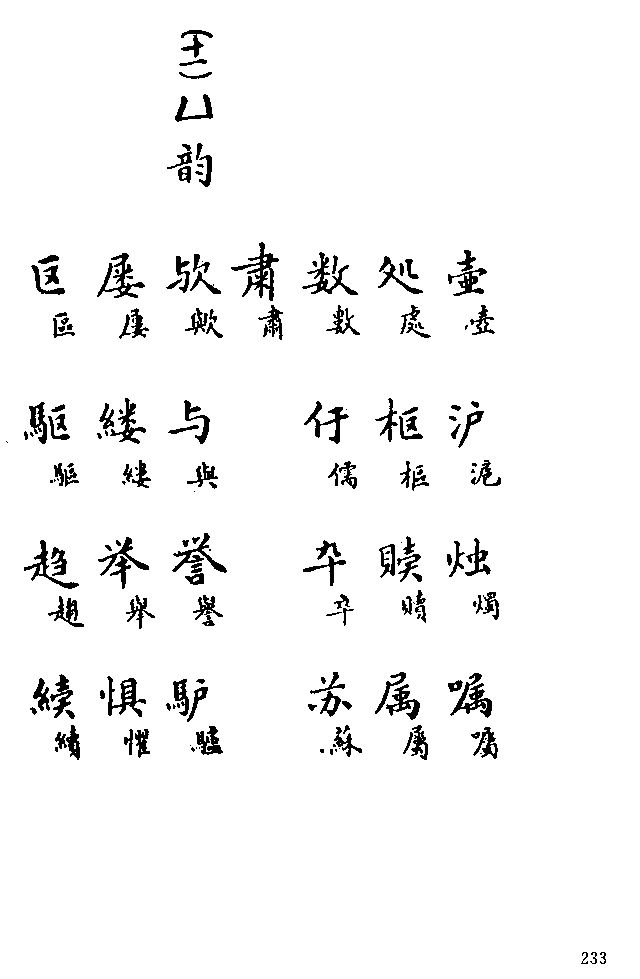 壶壺沪滬烛燭嘱囑
处處枢樞赎贖属屬
数數伃儒卆卒苏蘇
肃肅
（十一）ㄩ韵
欤歟与與誉譽驴驢
屡屢缕縷举舉惧懼
区區驱驅趋趨续續
233